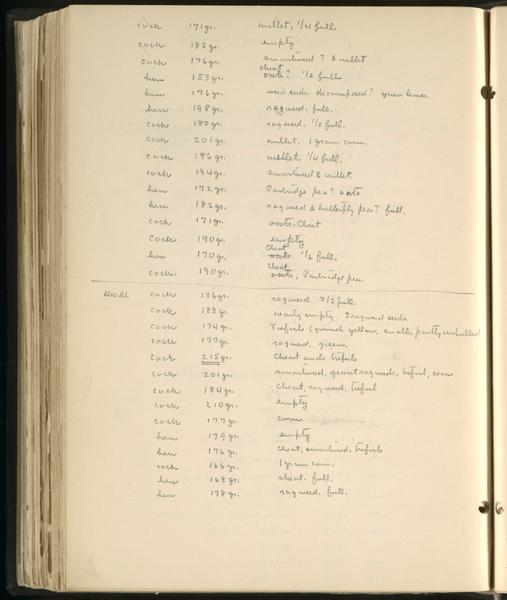 cock 171gr. millet, 1/4 full
cock 182gr. empty
cock 176gr. smartweed ? & millet
cheat
hen 153gr. oats? 1/2 full
hen 176gr. weed seeds. decomposed? green leaves.
hen 198gr. ragweed. full.
cock 180gr. ragweed. 1/2 full.
cock 201gr. millet. 1 grain corn.
cock 196gr. millet, 1/4 full.
cock 194gr. smartweed & millet.
hen 172gr. Partridge pea? oats
hen 182gr. ragweed & butterfly pea? full.
cock 171gr. oats. Cheat
cock 190gr. empty
Cheat
hen 170gr. oats. 1/2 full.
cheat
cock. 190gr. oats, Partridge pea.
Dec 21. cock 186gr. ragweed 2/3 full.
cock 188gr. nearly empty. 3 ragweed seeds
cock 174gr. Trefoils (greenish yellow, small, partly unhulled
cock 177gr. ragweed, greens.
cock 215gr. Cheat and trefoils
cock 201gr. smartweed, giant ragweeds, trefoil, corn
cock 184gr. Cheat, ragweed, trefoil
cock 210gr. empty
cock 177gr. corn
hen 179gr. empty
hen 176gr. cheat, smartweed, trefoils
cock 166gr. 1 grain corn.
hen 168gr. cheat. full.
hen 178gr. ragweed. full.